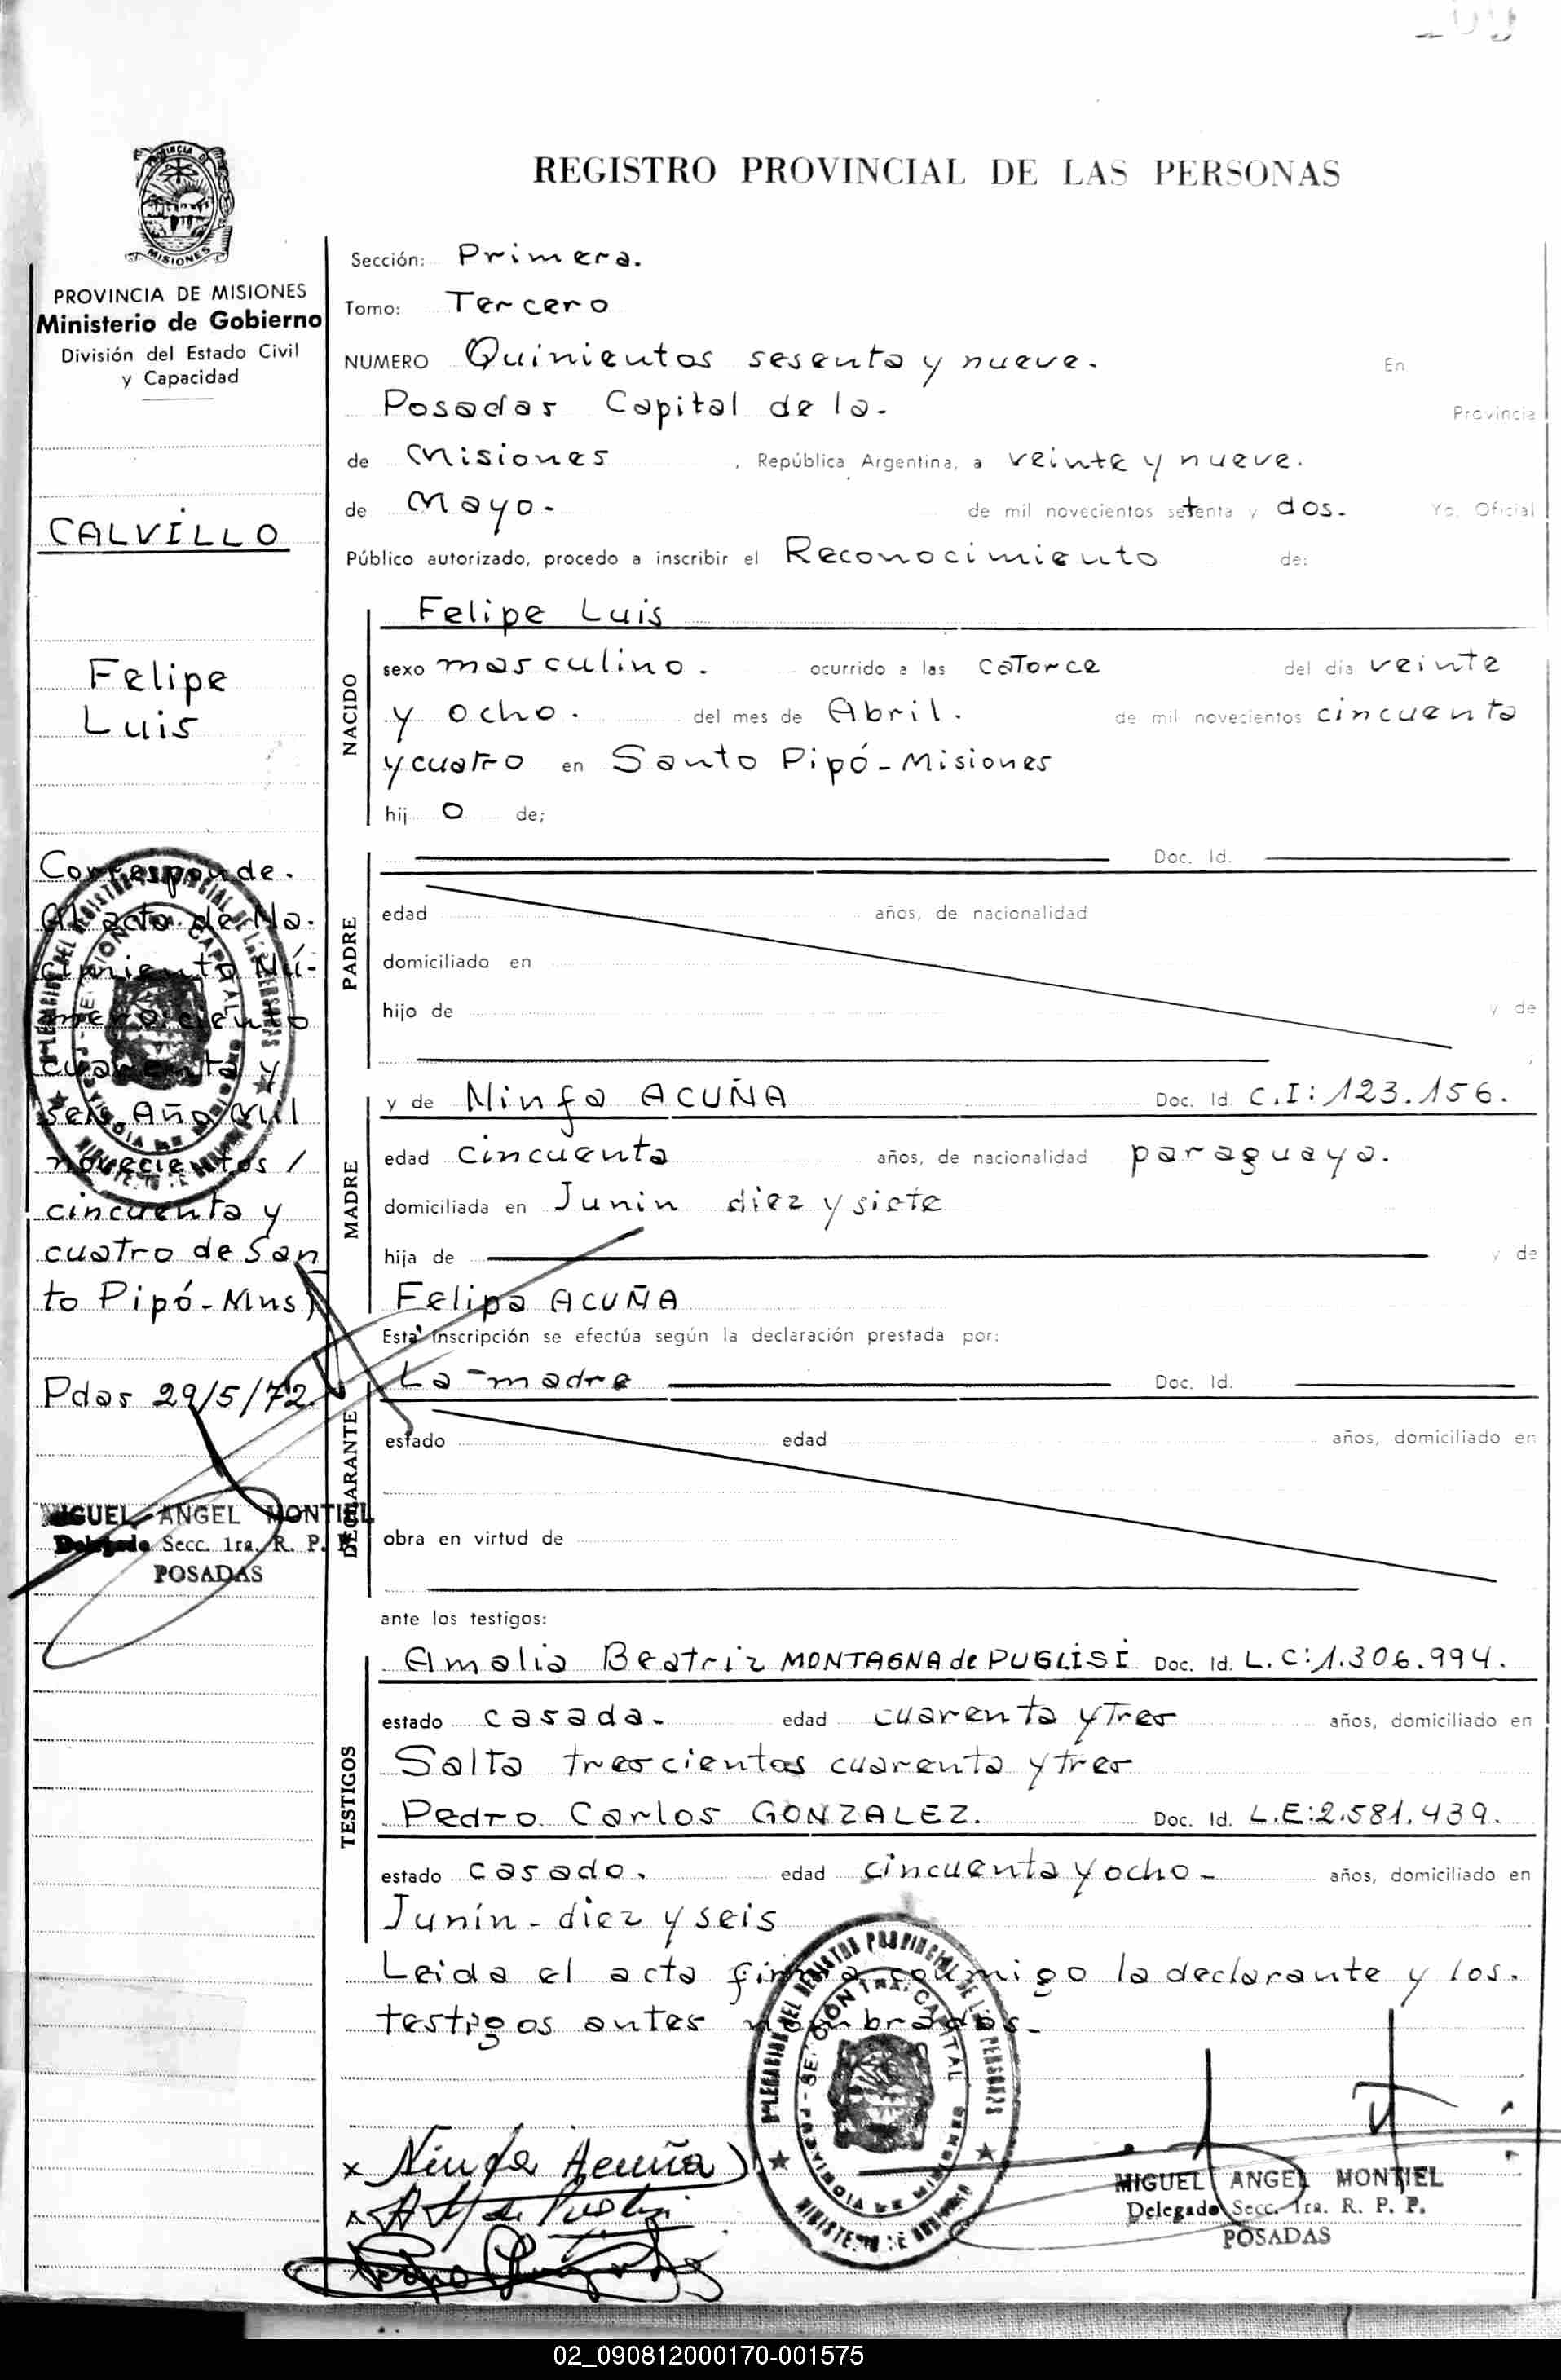 REGISTRO PROVINCIAL DE LAS PERSONAS
MISIONES
PROVINCIA DE MISIONES
Ministerio de Gobierno
División del Estado Civil
y Capacidad
CALVILLO
Felipe
Luis
Corresponde.
Al acta de Na-
cimiento Nú-
mero: ciento
cuarenta y
seis Año Mil
novecientos /
cincuenta y
cuatro de San
to Pipó-Mns)
Pdas 29/5/72.
MIGUEL ANGEL MONTIEL
Delegado Secc. 1ra. R. P. P.
POSADAS
Sección: Primera.
Tomo: Tercero
NUMERO Quinientos sesenta y nueve. En
Posadas Capital de la- Provincia
de Misiones , República Argentina, a veinte y nueve.
de Mayo- de mil novecientos setenta y dos. Yo, Oficial
Público autorizado, procedo a inscribir el Reconocimiento de:
NACIDO
Felipe Luis
sexo masculino. ocurrido a las catorce del día veinte
y ocho. del mes de Abril. de mil novecientos cincuenta
y cuatro en Santo Pipó-Misiones
hij o de;
PADRE
Doc. Id.
edad años, de nacionalidad
domiciliado en
hijo de y de
MADRE
y de Ninfa ACUÑA Doc. Id. C.I: 123.156.
edad cincuenta años, de nacionalidad paraguaya.
domiciliada en Junin diez y siete
hija de y de
Felipa ACUÑA
Esta inscripción se efectúa según la declaración prestada por:
DECLARANTE
La-madre Doc. Id.
estado edad años, domiciliado en
obra en virtud de
ante los testigos:
TESTIGOS
Amalia Beatriz MONTAGNA de PUGLISI Doc. Id. L.C: 1.306.994.
estado casada- edad cuarenta y tres años, domiciliado en
Salta trescientos cuarenta y tres
Pedro Carlos GONZALEZ. Doc. Id. L.E: 2.581.439.
estado casado. edad cincuenta y ocho- años, domiciliado en
Junín-diez y seis
Leida el acta firma conmigo la declarante y los.
testigos antes nombrados-
x Ninfa Acuña
MIGUEL ANGEL MONTIEL
Delegado Secc. 1ra. R. P. P.
POSADAS
02_090812000170-001575